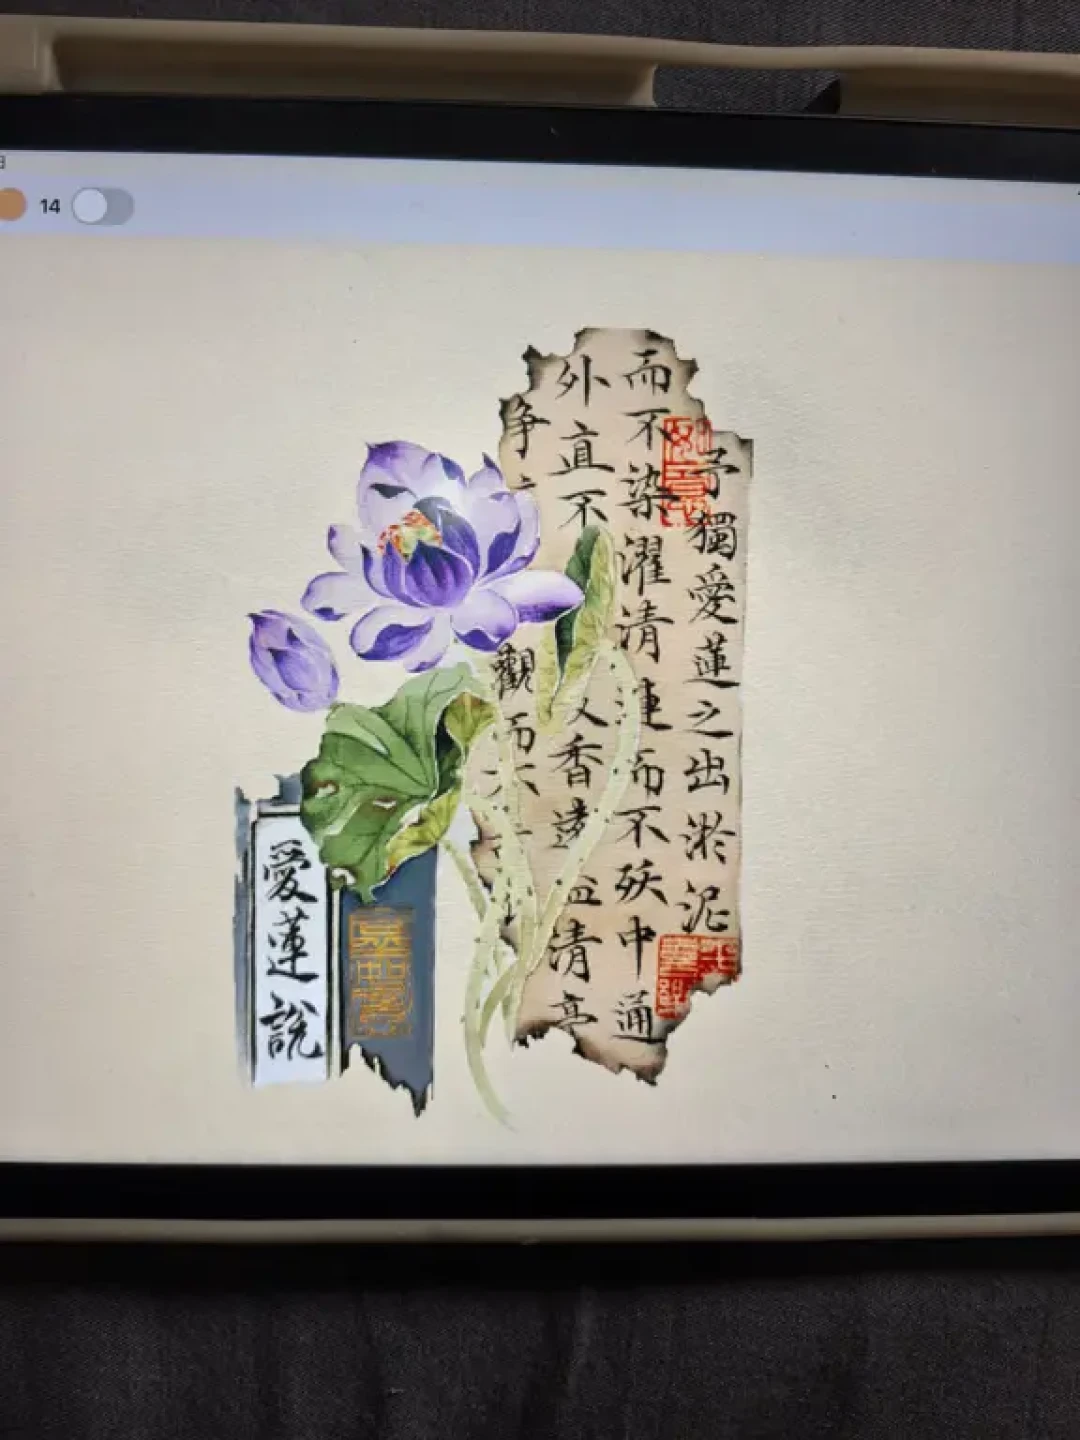 14
予獨愛蓮之出淤泥
而不染濯清漣而不妖中通
外直不香遠益清亭
净觀而不
愛蓮說
如意